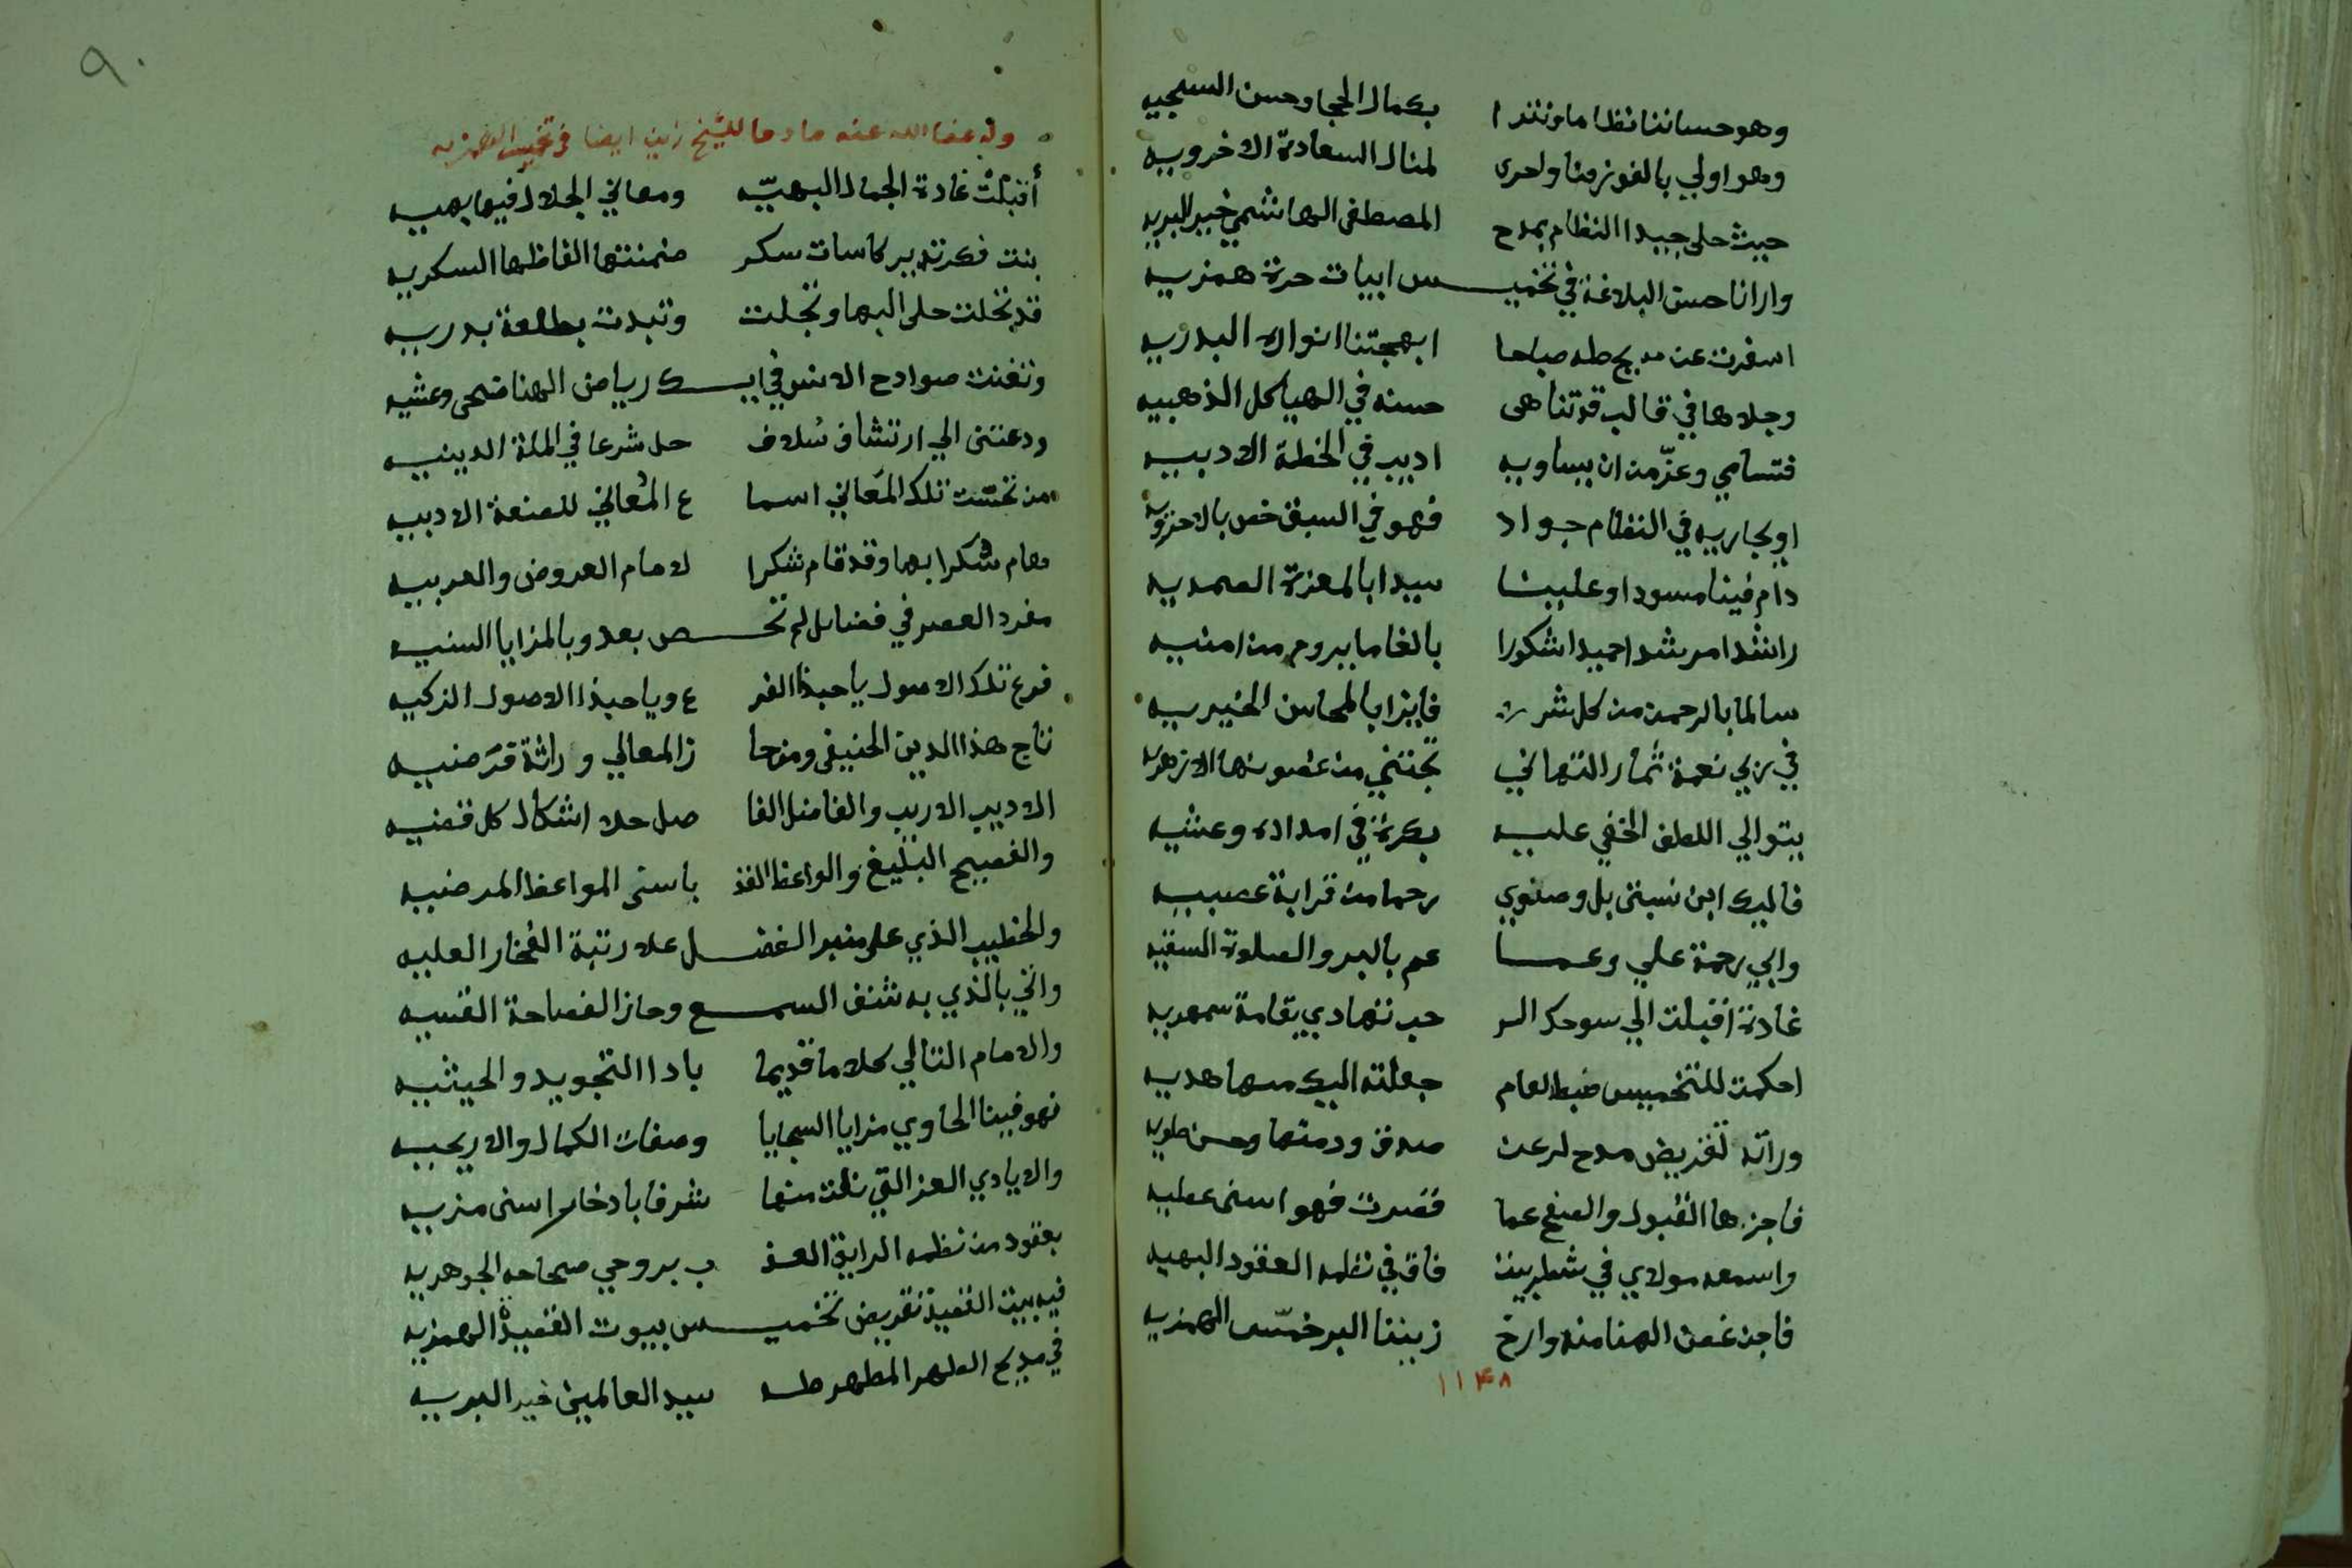 وهو حساننا نظاما ونثرا بكمال الحجا وحسن السجيه
وهو اولي بالفوز منا واحرى لمنال السعادة الاخرويه
حيث حلى جيد النظام بمدح المصطفى الهاشمي خير البريه
وارانا حسن البلاغة في تخميس ابيات حرة همزيه
اسفرت عن مديح طه صباحا ابهجتنا انواره البدريه
وجلاها في قالب قد تناهى حسنه في الهياكل الذهبيه
فتسامي وعزّ من ان يساويه اديب في الخطة الادبيه
او يجاريه في النظام جواد فهو في السبق خص بالاحزويه
دام فينا مسودا وعلينا سيدا بالمعزة الصمديه
راشدا مرشدا حميدا شكورا بالغا ما يروم من امنيه
سالما بالرحمن من كل شر فايزا بالمحاسن الخيريه
في ربي نعمة ثمار التهاني تجتني من غصونها الازهريه
يتوالي اللطف الخفي عليه بكرة في امداده وعشيه
فاليك ابن نسبتى بل وصنوي رحما من قرابة عصبيه
وابي رحمة علي وعما عم بالبر والصلوة السنيه
غادة اقبلت الي سوحك الر حب تتهادي بقامة سمهريه
احكمت للتخميس ضبط لعام جعلته اليك منها هديه
وراته تقريض مدح لرعن صدق ودمتها وحسن طويه
فاجزها القبول والصفح عما قصرت فهو اسنى عطيه
واسمعه مولاي في شطر بيت فاق في نظمه العقود البهيه
فاجن غصن الهنا منه وارخ زيننا البر خمّس الهمزيه
١١٤٨
٩٠
وله عفا الله عنه مادحا للشيخ زين ايضا في تخميس الهمزيه
أقبلت غادة الجمال البهيّه ومعاني الجلال فيها بهيه
بنت فكر تدير كاسات سكر ضمنتها الفاظها السكريه
قد تحلت حلى البها وتجلت وتبدت بطلعة بدريه
وتغنت صوادح الانس في ايك رياض الهنا ضحى وعشيه
ودعتنى الي ارتشاف سُلاف حل شرعا في الملة الدينيه
من تحسّت تلك المَعاني اسما ع المُعاني للصنعة الادبيه
هام سُكرا بها وقد قام شكرا لامام العروض والعربيه
مفرد العصر في فضايل لم تحص بعد وبالمزايا السنيه
فرع تلك الاصول يا حبذا الفر ع ويا حبذا الاصول الزكيه
تاج هذا الدين الحنيفى ومن حا ز المعالي وراثة قرَضيه
الاديب الاريب والفاضل الفا صل حلا اشكال كل قضيه
والفصيح البليغ والواعظ الفذ باسنى المواعظ المرضيه
والخطيب الذي على منبر الفضل علا رتبة الفخار العليه
واخي بالذي به شنف السمع وحاز الفصاحة القسيه
والامام التالي كلاما قديما بادا التجويد والحيثيه
فهو فينا الحاوي مزايا السجايا وصفات الكمال والاريحيه
والايادي الغر التي نلت منها شرفا بادخار اسنى مزيه
بعقود من نظمه الرايق العذ ب بروحي صحاحه الجوهريه
فيه بيت القصيد تقريض تخميس بيوت القصيدة الهمزيه
في مديح الطهر المطهر طه سيد العالمين خير البريه